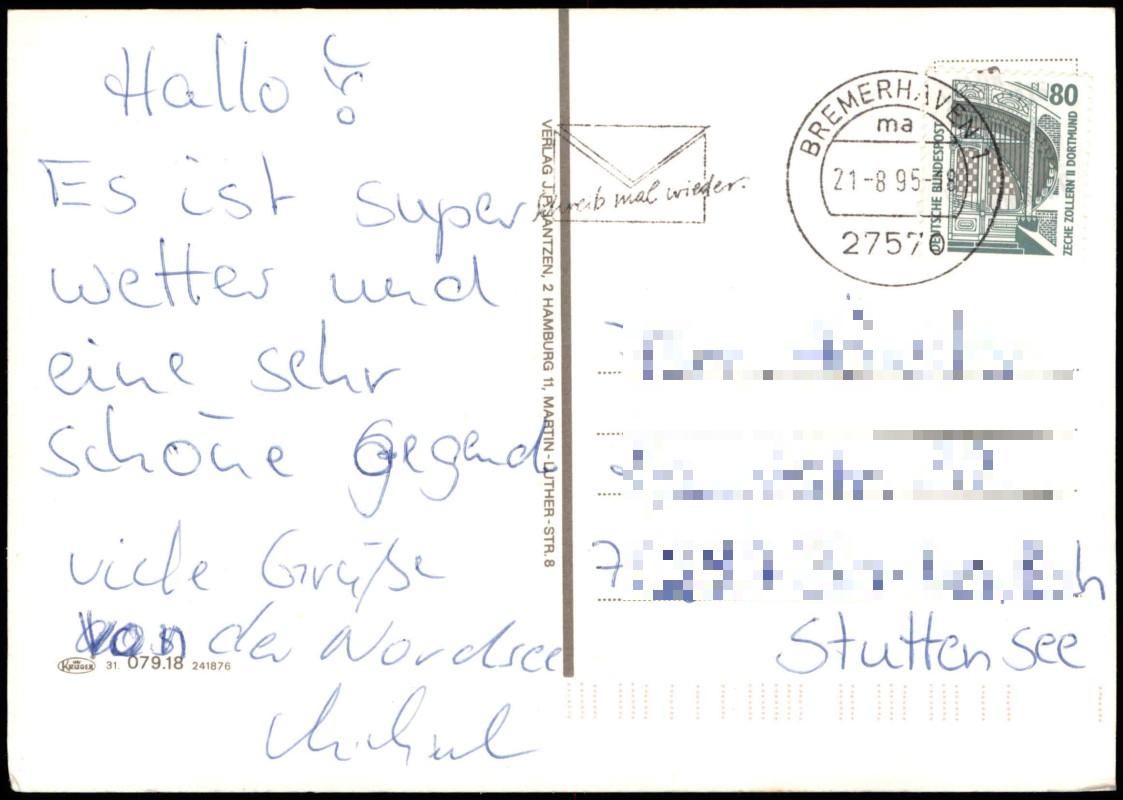 Hallo!
Es ist super
wetter und
eine sehr
schöne Gegend
viele Grüße
von der Nordsee
Michael
KRÜGER 31. 079.18 241876
VERLAG J. JANTZEN, 2 HAMBURG 11, MARTIN-LUTHER-STR. 8
Schreib mal wieder.
BREMERHAVEN 1
ma
21-8 95-18
27570
80
DEUTSCHE BUNDESPOST
ZECHE ZOLLERN II DORTMUND
7
h
Stutten see